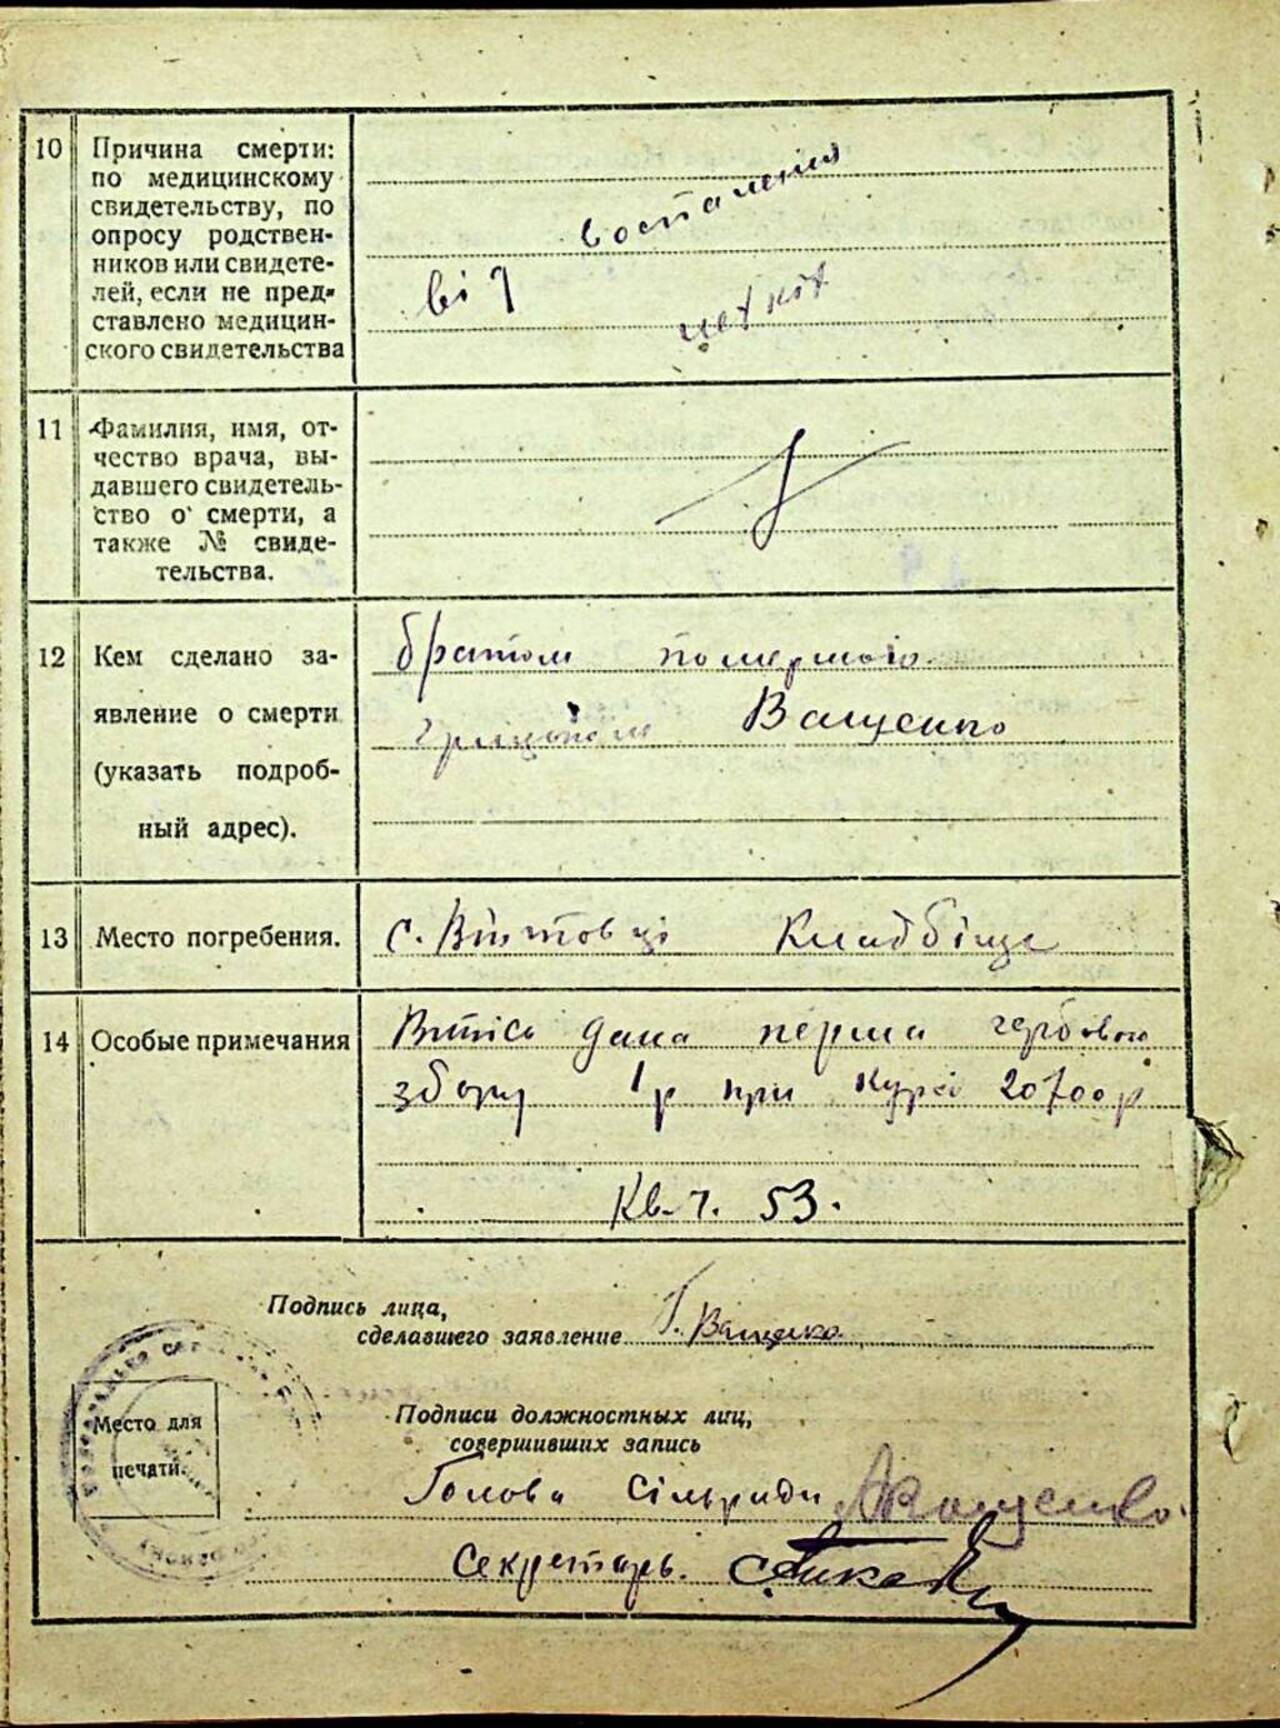 10 Причина смерти:
по медицинскому
свидетельству, по
опросу родствен-
ников или свидете-
лей, если не пред-
ставлено медицин-
ского свидетельства
воспаления
від
11 Фамилия, имя, от-
чество врача, вы-
давшего свидетель-
ство о смерти, а
также № свиде-
тельства.
12 Кем сделано за-
явление о смерти
(указать подроб-
ный адрес).
братом помершого
Ващенко
13 Место погребения.
с. Війтовці Кладбіще
14 Особые примечания
Витісь дана перша гербового
збору 1р при курсі 20700р
Кв. ч. 53.
Подпись лица,
сделавшего заявление Г. Ващенко
Место для
печати.
Подписи должностных лиц,
совершивших запись
Голова Сільради Ващенко
Секретарь.